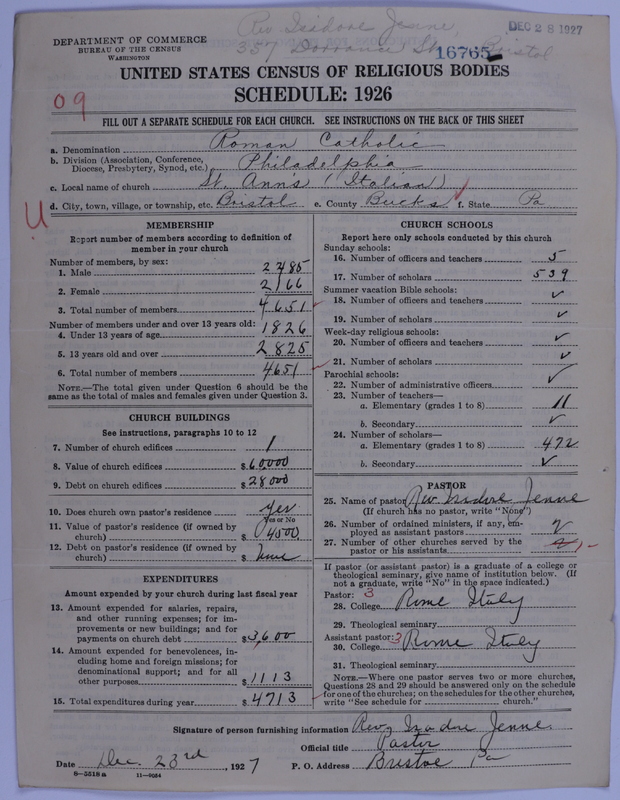 Rev Isidore Jenne,
357 Dorrance St. Bristol
DEC 28 1927
16765
DEPARTMENT OF COMMERCE
BUREAU OF THE CENSUS
WASHINGTON
UNITED STATES CENSUS OF RELIGIOUS BODIES
SCHEDULE: 1926
09
FILL OUT A SEPARATE SCHEDULE FOR EACH CHURCH. SEE INSTRUCTIONS ON THE BACK OF THIS SHEET
a. Denomination Roman Catholic
b. Division (Association, Conference, Diocese, Presbytery, Synod, etc.) Philadelphia
c. Local name of church St. Ann's (Italian)
d. City, town, village, or township, etc. Bristol e. County Bucks f. State Pa
U
MEMBERSHIP
Report number of members according to definition of
member in your church
Number of members, by sex:
1. Male 2485
2. Female 2166
3. Total number of members 4651
Number of members under and over 13 years old:
4. Under 13 years of age 1826
5. 13 years old and over 2825
6. Total number of members 4651
NOTE.—The total given under Question 6 should be the
same as the total of males and females given under Question 3.
CHURCH BUILDINGS
See instructions, paragraphs 10 to 12
7. Number of church edifices 1
8. Value of church edifices $60000
9. Debt on church edifices $28000
10. Does church own pastor's residence yes
Yes or No
11. Value of pastor's residence (if owned by
church) $4500
12. Debt on pastor's residence (if owned by
church) $ none
EXPENDITURES
Amount expended by your church during last fiscal year
13. Amount expended for salaries, repairs,
and other running expenses; for im-
provements or new buildings; and for
payments on church debt $3,600
14. Amount expended for benevolences, in-
cluding home and foreign missions; for
denominational support; and for all
other purposes $1113
15. Total expenditures during year $4713
CHURCH SCHOOLS
Report here only schools conducted by this church
Sunday schools:
16. Number of officers and teachers 5
17. Number of scholars 539
Summer vacation Bible schools:
18. Number of officers and teachers ✓
19. Number of scholars ✓
Week-day religious schools:
20. Number of officers and teachers ✓
21. Number of scholars ✓
Parochial schools:
22. Number of administrative officers ✓
23. Number of teachers—
a. Elementary (grades 1 to 8) 11
b. Secondary ✓
24. Number of scholars—
a. Elementary (grades 1 to 8) 472
b. Secondary ✓
PASTOR
25. Name of pastor Rev Isidore Jenne
(If church has no pastor, write "None")
26. Number of ordained ministers, if any, em-
ployed as assistant pastors 2
27. Number of other churches served by the
pastor or his assistants 1-
If pastor (or assistant pastor) is a graduate of a college or
theological seminary, give name of institution below. (If
not a graduate, write "No" in the space indicated.)
Pastor: 3
28. College Rome Italy
29. Theological seminary
Assistant pastor: 3
30. College Rome Italy
31. Theological seminary
NOTE.—Where one pastor serves two or more churches,
Questions 28 and 29 should be answered only on the schedule
for one of the churches; on the schedules for the other churches,
write "See schedule for church."
Signature of person furnishing information Rev Isadre Jenne
Official title Pastor
Date Dec. 23rd, 1927 P. O. Address Bristol Pa
8—5518a 11—9034